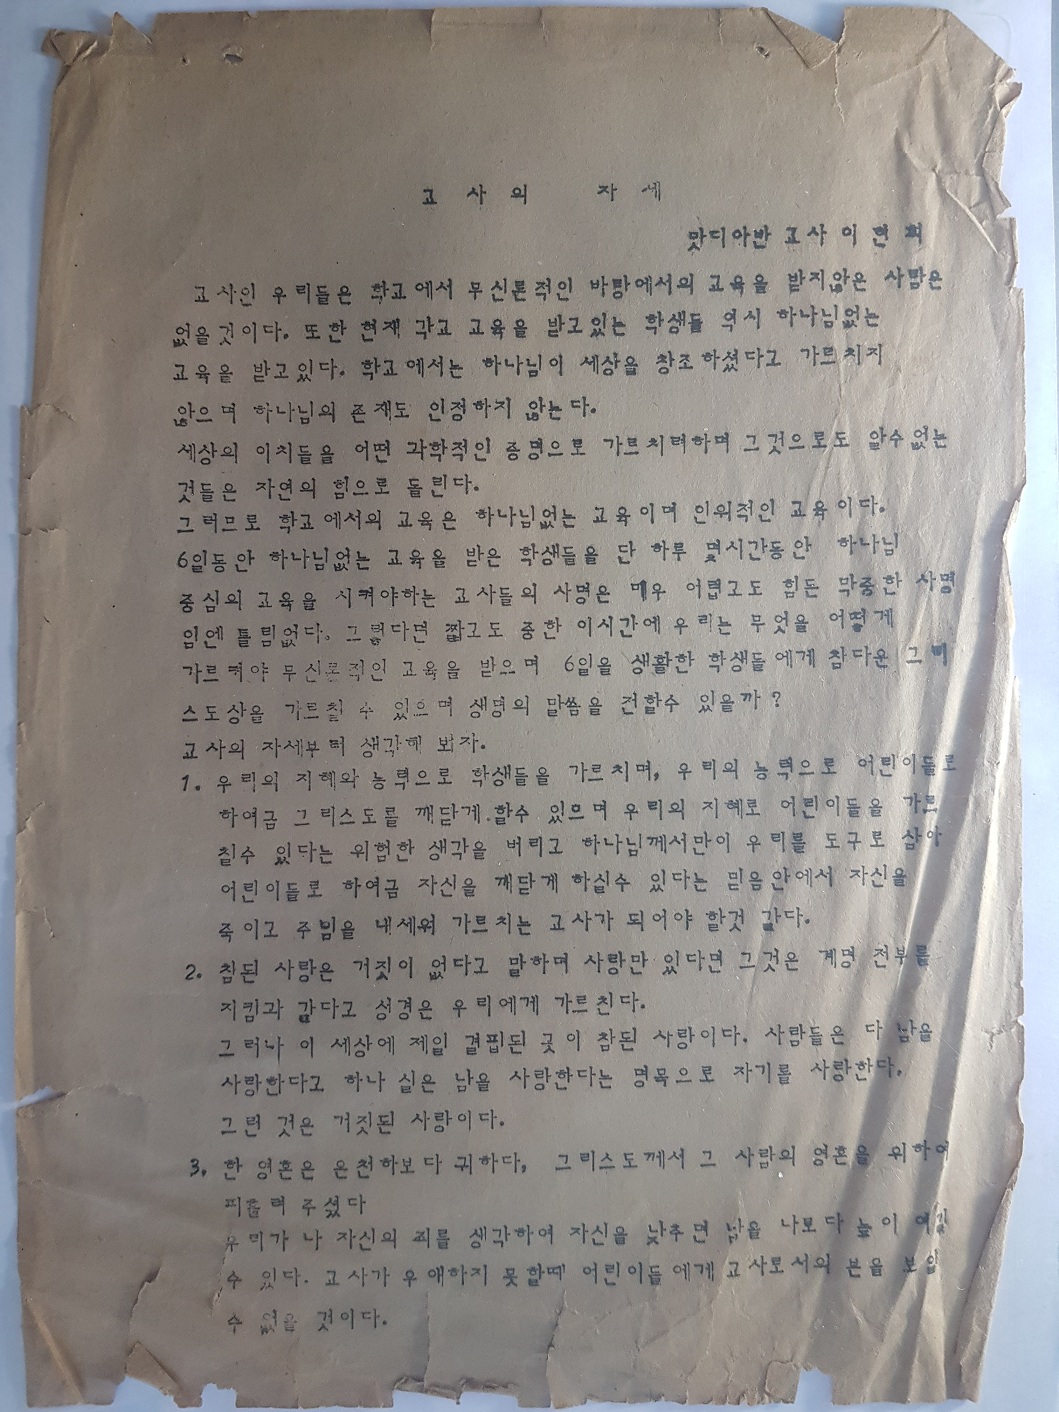 교사의 자세
맛디아반 교사 이 현 희
교사인 우리들은 학교에서 무신론적인 바탕에서의 교육을 받지않은 사람은
없을것이다. 또한 현재 각고 교육을 받고있는 학생들 역시 하나님없는
교육을 받고있다. 학교에서는 하나님이 세상을 창조하셨다고 가르치지
않으며 하나님의 존재도 인정하지 않는다.
세상의 이치들을 어떤 과학적인 증명으로 가르치려하며 그것으로도 알수없는
것들은 자연의 힘으로 돌린다.
그러므로 학교에서의 교육은 하나님없는 교육이며 인위적인 교육이다.
6일동안 하나님없는 교육을 받은 학생들을 단 하루 몇시간동안 하나님
중심의 교육을 시켜야하는 교사들의 사명은 매우 어렵고도 힘든 막중한 사명
임엔 틀림없다. 그렇다면 짧고도 중한 이시간에 우리는 무엇을 어떻게
가르켜야 무신론적인 교육을 받으며 6일을 생활한 학생들에게 참다운 그리
스도상을 가르칠 수 있으며 생명의 말씀을 전할수 있을까?
교사의 자세부터 생각해 보자.
1. 우리의 지혜와 능력으로 학생들을 가르치며, 우리의 능력으로 어린이들로
하여금 그리스도를 깨닫게 할수 있으며 우리의 지혜로 어린이들을 가르
칠수 있다는 위험한 생각을 버리고 하나님께서만이 우리를 도구로 삼아
어린이들로 하여금 자신을 깨닫게 하실수 있다는 믿음안에서 자신을
죽이고 주님을 내세워 가르치는 교사가 되어야 할것 같다.
2. 참된 사랑은 거짓이 없다고 말하며 사랑만 있다면 그것은 계명 전부를
지킴과 같다고 성경은 우리에게 가르친다.
그러나 이 세상에 제일 결핍된 곳이 참된 사랑이다. 사람들은 다 남을
사랑한다고 하나 실은 남을 사랑한다는 명목으로 자기를 사랑한다.
그런 것은 거짓된 사랑이다.
3. 한 영혼은 온천하보다 귀하다, 그리스도께서 그 사람의 영혼을 위하여
피흘려 주셨다
우리가 나 자신의 죄를 생각하여 자신을 낮추면 남을 나보다 높이 여길
수 있다. 교사가 우애하지 못할때 어린이들에게 교사로서의 본을 보일
수 없을 것이다.